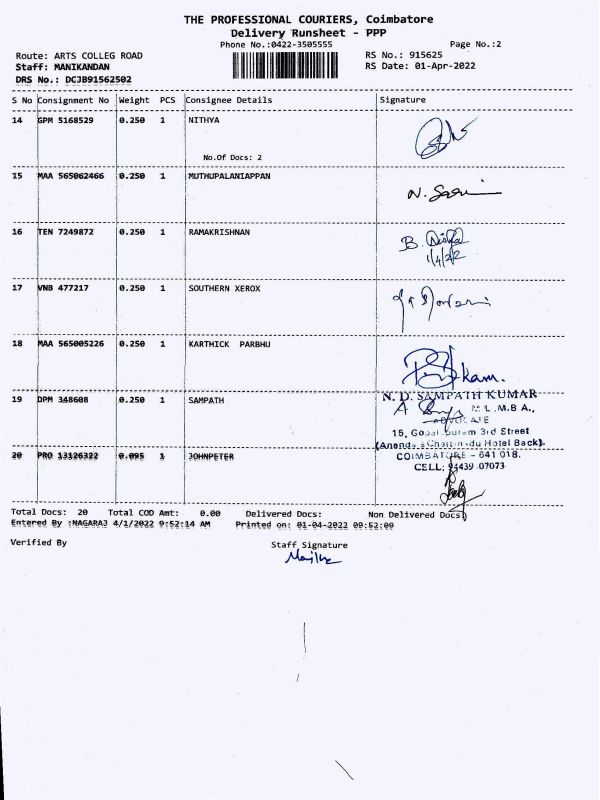 THE PROFESSIONAL COURIERS, Coimbatore
Delivery Runsheet - PPP
Phone No.:0422-3505555 Page No.:2
Route: ARTS COLLEG ROAD RS No.: 915625
Staff: MANIKANDAN RS Date: 01-Apr-2022
DRS No.: DCJB91562502
S No Consignment No Weight PCS Consignee Details Signature
14 GPM 5168529 0.250 1 NITHYA
No.Of Docs: 2
15 MAA 565062466 0.250 1 MUTHUPALANIAPPAN
16 TEN 7249872 0.250 1 RAMAKRISHNAN
B.
1/4/22
17 VNB 477217 0.250 1 SOUTHERN XEROX
18 MAA 565005226 0.250 1 KARTHICK PARBHU
N. D. SAMPATH KUMAR
19 DPM 348608 0.250 1 SAMPATH
M.L.,M.B A.,
ADVOCATE
15, Gopalpuram 3rd Street
Hotel Back).
20 PRO 13126322 0.095 1 JOHNPETER
COIMBATORE - 641 018.
CELL: 94439 07073
Total Docs: 20 Total COD Amt: 0.00 Delivered Docs: Non Delivered Docs:
Entered By :NAGARAJ 4/1/2022 9:52:14 AM Printed on: 01-04-2022 09:52:00
Verified By Staff Signature